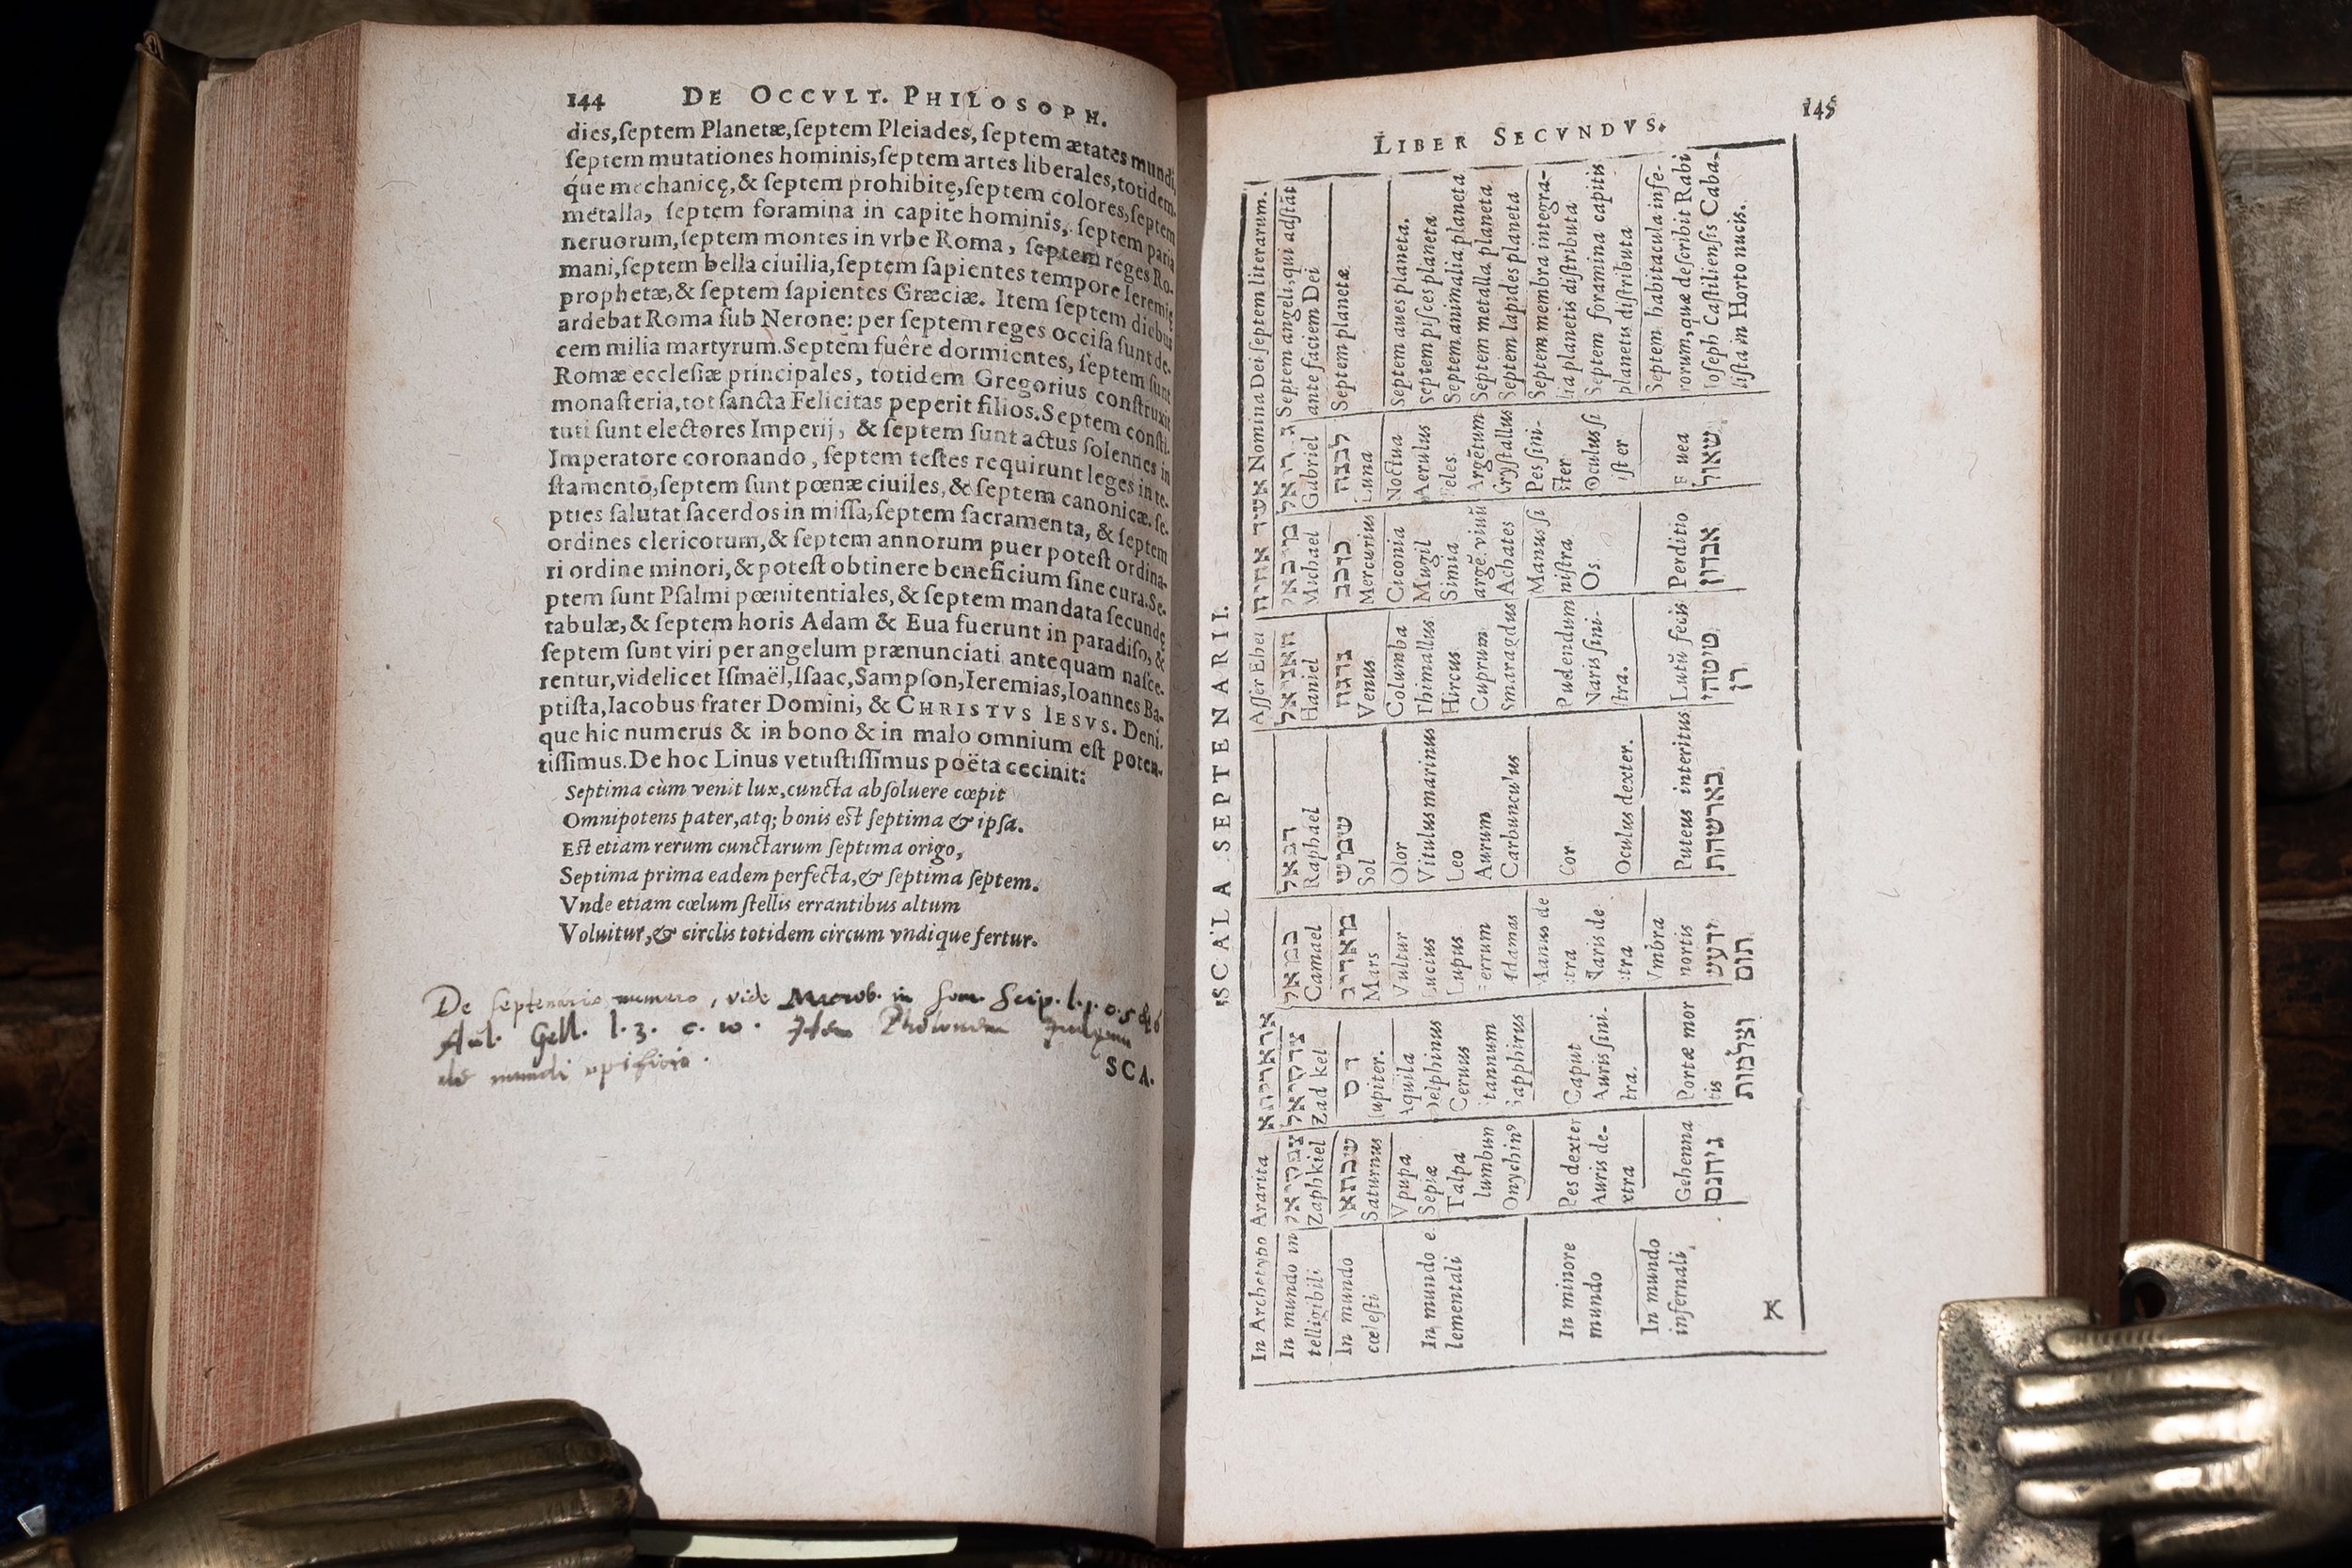 144 DE OCCVLT. PHILOSOPH.
dies,ſeptem Planetæ,ſeptem Pleiades, ſeptem ætates mundi,
ſeptem mutationes hominis,ſeptem artes liberales,totidem-
que mechanicę,& ſeptem prohibitę,ſeptem colores,ſeptem
metalla, ſeptem foramina in capite hominis, ſeptem paria
neruorum,ſeptem montes in vrbe Roma, ſeptem reges Ro-
mani,ſeptem bella ciuilia,ſeptem ſapientes tempore Ieremię
prophetæ,& ſeptem ſapientes Græciæ. Item ſeptem diebus
ardebat Roma ſub Nerone: per ſeptem reges occiſa ſunt de-
cem milia martyrum.Septem fuêre dormientes, ſeptem ſunt
Romæ eccleſiæ principales, totidem Gregorius conſtruxit
monaſteria,tot ſancta Felicitas peperit filios.Septem conſti-
tuti ſunt electores Imperij, & ſeptem ſunt actus ſolennes in
Imperatore coronando, ſeptem teſtes requirunt leges in te-
ſtamento,ſeptem ſunt pœnæ ciuiles,& ſeptem canonicæ. ſe-
pties ſalutat ſacerdos in miſſa,ſeptem ſacramenta, & ſeptem
ordines clericorum,& ſeptem annorum puer poteſt ordina-
ri ordine minori,& poteſt obtinere beneficium ſine cura.Se-
ptem ſunt Pſalmi pœnitentiales,& ſeptem mandata ſecundę
tabulæ,& ſeptem horis Adam & Eua fuerunt in paradiſo, &
ſeptem ſunt viri per angelum prænunciati antequam naſce-
rentur,videlicet Iſmaël,Iſaac,Sampſon,Ieremias,Ioannes Ba-
ptiſta,Iacobus frater Domini, & CHRISTVS IESVS. Deni-
que hic numerus & in bono & in malo omnium eſt poten-
tiſſimus.De hoc Linus vetuſtiſſimus poëta cecinit:
Septima cùm venit lux,cuncta abſoluere cœpit
Omnipotens pater,atq; bonis eſt ſeptima & ipſa.
Eſt etiam rerum cunctarum ſeptima origo,
Septima prima eadem perfecta,& ſeptima ſeptem.
Vnde etiam cœlum ſtellis errantibus altum
Voluitur,& circlis totidem circum vndique fertur.
De ſeptenario numero, vide Macrob. in Som. Scip. l.1.c.5 & 6
Aul. Gell. l.3. c. 10. Item
de mundi opificio.
SCA-
LIBER SECVNDVS. 145
SCALA SEPTENARII.
In Archetypo | Ararita אראריתא | Aſſer Eheie אשר אהיה | Nomina Dei ſeptem literarum.
In mundo in telligibili | צפקיאל Zaphkiel | צדקיאל Zad kel | כמאל Camael | רפאל Raphael | האניאל Haniel | מיכאל Michael | גבריאל Gabriel | Septem angeli,qui adſtāt ante faciem Dei
In mundo cœleſti | שבתאי Saturnus | צדק Iupiter. | מאדים Mars | שמש Sol | נוגה Venus | כוכב Mercurius | לבנה Luna | Septem planetæ
In mundo e lementali | Vpupa | Aquila | Vultur | Olor | Columba | Ciconia | Noctua | Septem aues planeta.
Sepiæ | Delphinus | Lucius | Vitulus marinus | Thimallus | Mugil | Aerulus | Septem piſces planeta
Talpa | Ceruus | Lupus | Leo | Hircus | Simia | Feles | Septem animalia planeta
lumbun | ſtannum | Ferrum | Aurum | Cuprum | argē. viuū | Argētum | Septem metalla planeta
Onychinꝰ | Sapphirus | Adamas | Carbunculus | Smaragdus | Achates | Cryſtallus | Septem lapides planeta
In minore mundo | Pes dexter | Caput | Manus de xtra | Cor | Pudendum | Manus ſi niſtra | Pes ſini- ſter | Septem membra integra- lia planetis diſtributa
Auris de- xtra | Auris ſini- ſtra. | Naris de xtra | Oculus dexter. | Naris ſini- ſtra. | Os. | Oculus ſi niſt er | Septem foramina capitis planetis diſtributa
In mundo infernali | Gehenna גיהנם | Portæ mor tis צלמות | Vmbra mortis | Puteus interitus בארשחת | Lutū fęcis טיטהיון | Perditio אבדון | Fouea שאול | Septem habitacula infe- rorum,quæ deſcribit Rabi Ioſeph Caſtilienſis Caba- liſta in Horto nucis.
K